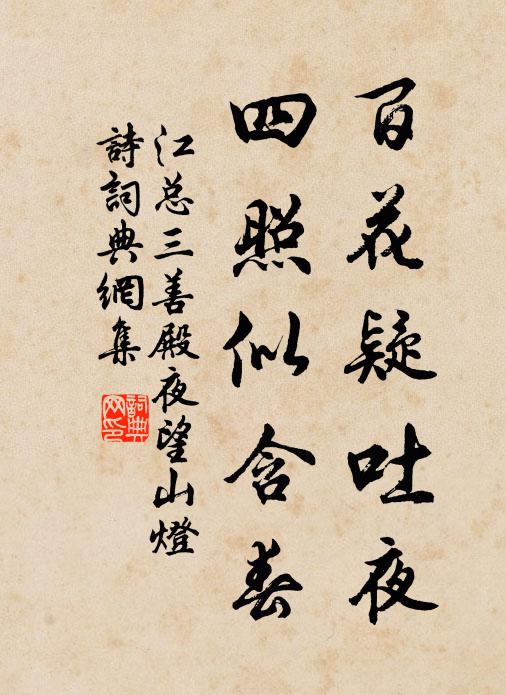 百花疑吐夜
四照似含春
江总三善殿夜望山燈
詩詞典網集
詞典
网印